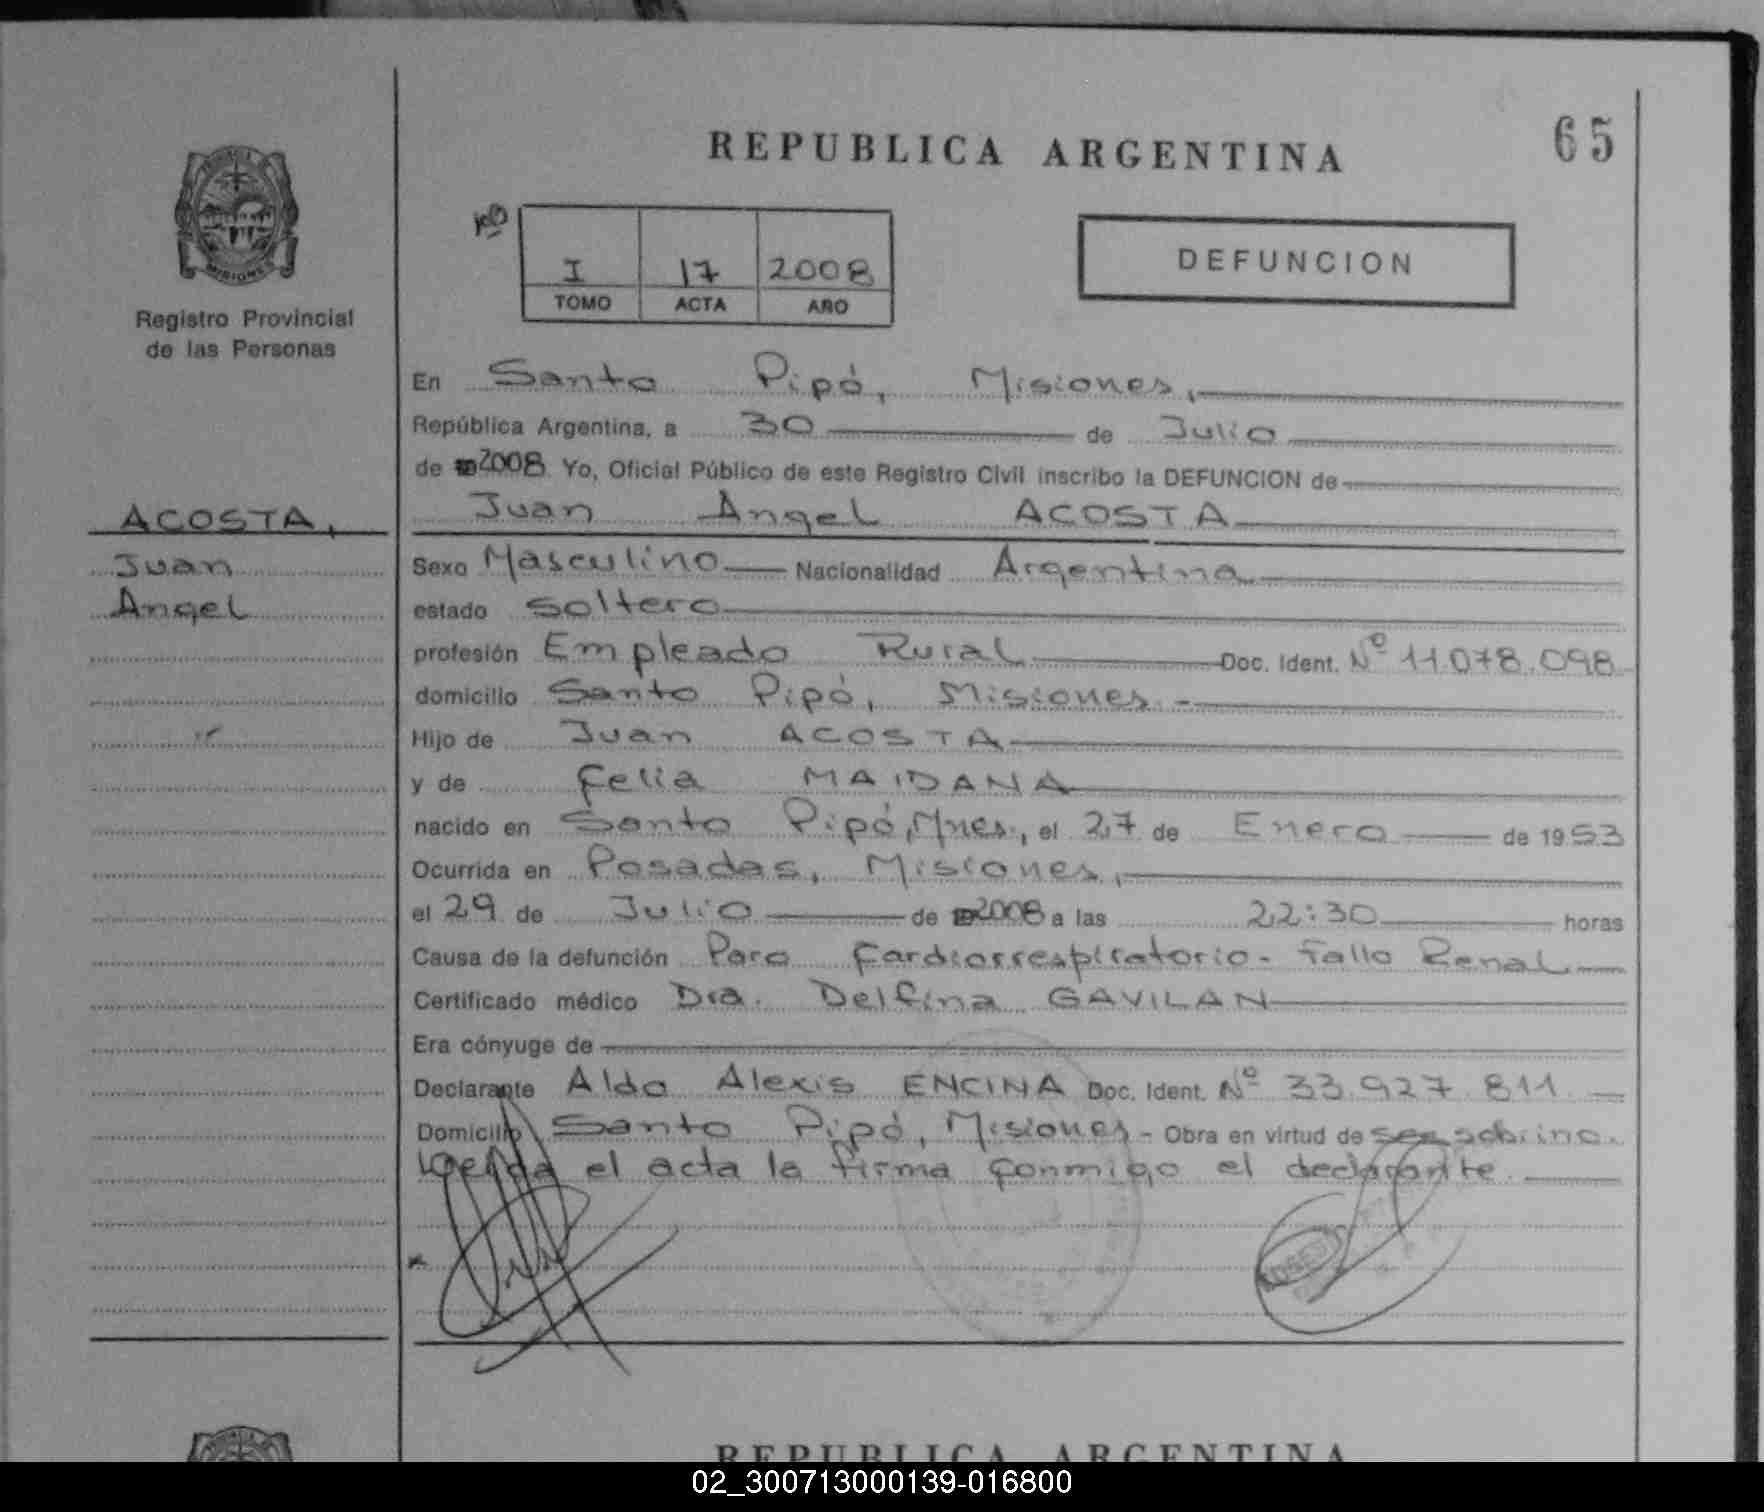 REPUBLICA ARGENTINA
65
MISIONES
Registro Provincial
de las Personas
I 17 2008
TOMO ACTA AÑO
DEFUNCION
En Santo Pipó, Misiones,
República Argentina, a 30 de Julio
de 2008. Yo, Oficial Público de este Registro Civil inscribo la DEFUNCION de
Juan Angel ACOSTA
ACOSTA,
Juan
Angel
Sexo Masculino Nacionalidad Argentina
estado soltero
profesión Empleado Rural Doc. Ident. Nº 11.078.098
domicilio Santo Pipó, Misiones.-
Hijo de Juan ACOSTA
y de Felia MAIDANA
nacido en Santo Pipó, Mnes., el 27 de Enero de 1953
Ocurrida en Posadas, Misiones,
el 29 de Julio de 2008 a las 22:30 horas
Causa de la defunción Paro Cardiorrespiratorio - Fallo Renal
Certificado médico Dra. Delfina GAVILAN
Era cónyuge de
Declarante Aldo Alexis ENCINA Doc. Ident. Nº 33.927.811.
Domicilio Santo Pipó, Misiones - Obra en virtud de ser sobrino.
Leída el acta la firma conmigo el declarante.
REPUBLICA ARGENTINA
02_300713000139-016800